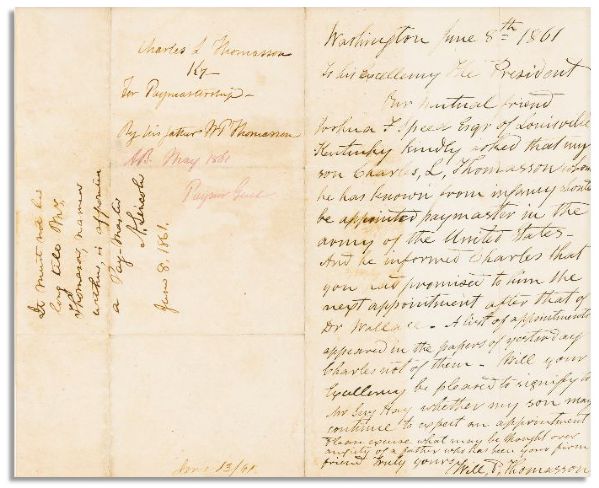 Charles L Thomasson
Ky
For Paymastership
By his father W P Thomasson
May 1861
It must not be
long till Mr.
Thomasson, named
within, is appointed
a Pay-Master
A. Lincoln
June 8. 1861.
June 13/61
Washington June 8th 1861
To his Excellency The President
Our mutual friend
Joshua F Speed Esqr of Louisville
Kentucky kindly asked that my
son Charles, L, Thomasson whom
he has known from infancy should
be appointed paymaster in the
army of the United States –
And he informed Charles that
you had promised to him the
next appointment after that of
Dr Wallace – A list of appointments
appeared in the papers of yesterday
Charles not of them – Will your
Excellency be pleased to signify to
Mr Hay whether my son may
continue to expect an appointment
Please excuse what may be thought over
anxiety of a father who has been your firm
friend Truly yours Will, P, Thomasson